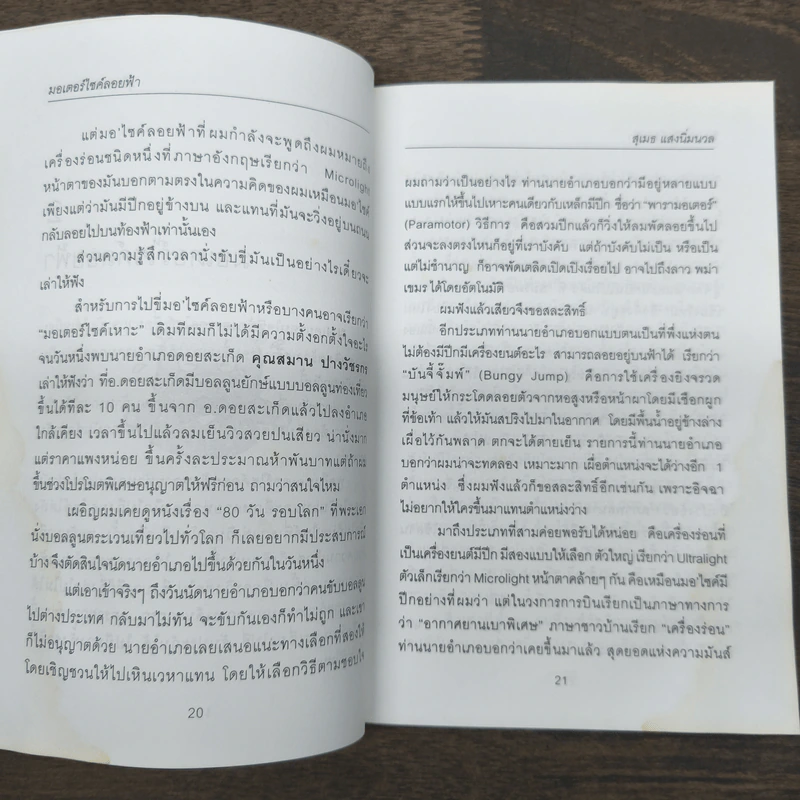 มอเตอร์ไซค์ลอยฟ้า
แต่มอ'ไซค์ลอยฟ้าที่ผมกำลังจะพูดถึงผมหมายถึง
เครื่องร่อนชนิดหนึ่งที่ภาษาอังกฤษเรียกว่า Microlight
หน้าตาของมันบอกตามตรงในความคิดของผมเหมือนมอ'ไซค์
เพียงแต่ว่ามันมีปีกอยู่ข้างบน และแทนที่มันจะวิ่งอยู่บนถนน
กลับลอยไปบนท้องฟ้าเท่านั้นเอง
ส่วนความรู้สึกเวลานั่งขับขี่มันเป็นอย่างไรเดี๋ยวจะ
เล่าให้ฟัง
สำหรับการไปขี่มอ'ไซค์ลอยฟ้าหรือบางคนอาจเรียกว่า
"มอเตอร์ไซค์เหาะ" เดิมทีผมก็ไม่ได้มีความตั้งอกตั้งใจอะไร
จนวันหนึ่งพบนายอำเภอดอยสะเก็ด คุณสมาน ปางวัชรกร
เล่าให้ฟังว่า ที่อ.ดอยสะเก็ดมีบอลลูนยักษ์แบบบอลลูนท่องเที่ยว
ขึ้นได้ทีละ 10 คน ขึ้นจาก อ.ดอยสะเก็ดแล้วไปลงอำเภอ
ใกล้เคียง เวลาขึ้นไปแล้วลมเย็นวิวสวยปนเสียว น่านั่งมาก
แต่ราคาแพงหน่อย ขึ้นครั้งละประมาณห้าพันบาทแต่ถ้าผม
ขึ้นช่วงโปรโมตพิเศษอนุญาตให้ฟรีก่อน ถามว่าสนใจไหม
เผอิญผมเคยดูหนังเรื่อง "80 วัน รอบโลก" ที่พระเอก
นั่งบอลลูนตระเวนเที่ยวไปทั่วโลก ก็เลยอยากมีประสบการณ์
บ้างจึงตัดสินใจนัดนายอำเภอไปขึ้นด้วยกันในวันหนึ่ง
แต่เอาเข้าจริงๆ ถึงวันนัดนายอำเภอบอกว่าคนขับบอลลูน
ไปต่างประเทศ กลับมาไม่ทัน จะขับกันเองก็ทำไม่ถูก และเขา
ก็ไม่อนุญาตด้วย นายอำเภอเลยเสนอแนะทางเลือกที่สองให้
โดยเชิญชวนให้ไปเหินเวหาแทน โดยให้เลือกวิธีตามชอบใจ
20
สุเมธ แสงนิ่มนวล
ผมถามว่าเป็นอย่างไร ท่านนายอำเภอบอกว่ามีอยู่หลายแบบ
แบบแรกให้ขึ้นไปเหาะคนเดียวกับเหล็กมีปีก ชื่อว่า "พารามอเตอร์"
(Paramotor) วิธีการ คือสวมปีกแล้วก็วิ่งให้ลมพัดลอยขึ้นไป
ส่วนจะลงตรงไหนก็อยู่ที่เราบังคับ แต่ถ้าบังคับไม่เป็น หรือเป็น
แต่ไม่ชำนาญ ก็อาจพัดเตลิดเปิดเปิงเรื่อยไป อาจไปถึงลาว พม่า
เขมร ได้โดยอัตโนมัติ
ผมฟังแล้วเสียวจึงขอสละสิทธิ์
อีกประเภทท่านนายอำเภอบอกแบบตนเป็นที่พึ่งแห่งตน
ไม่ต้องมีปีกมีเครื่องยนต์อะไร สามารถลอยอยู่บนฟ้าได้ เรียกว่า
"บันจี้จั๊มพ์" (Bungy Jump) คือการใช้เครื่องยิงจรวด
มนุษย์ให้กระโดดลอยตัวจากหอสูงหรือหน้าผาโดยมีเชือกผูก
ที่ข้อเท้า แล้วให้มันสปริงไปมาในอากาศ โดยมีพื้นน้ำอยู่ข้างล่าง
เผื่อไว้กันพลาด ตกจะได้ตายเย็น รายการนี้ท่านนายอำเภอ
บอกว่าผมน่าจะทดลอง เหมาะมาก เผื่อตำแหน่งจะได้ว่างอีก 1
ตำแหน่ง ซึ่งผมฟังแล้วก็ขอสละสิทธิ์อีกเช่นกัน เพราะอิจฉา
ไม่อยากให้ใครขึ้นมาแทนตำแหน่งว่าง
มาถึงประเภทที่สามค่อยพอรับได้หน่อย คือเครื่องร่อนที่
เป็นเครื่องยนต์มีปีก มีสองแบบให้เลือก ตัวใหญ่ เรียกว่า Ultralight
ตัวเล็กเรียกว่า Microlight หน้าตาคล้ายๆ กัน คือเหมือนมอ'ไซค์มี
ปีกอย่างที่ผมว่า แต่ในวงการการบินเรียกเป็นภาษาทางการ
ว่า "อากาศยานเบาพิเศษ" ภาษาชาวบ้านเรียก "เครื่องร่อน"
ท่านนายอำเภอบอกว่าเคยขึ้นมาแล้ว สุดยอดแห่งความมันส์
21